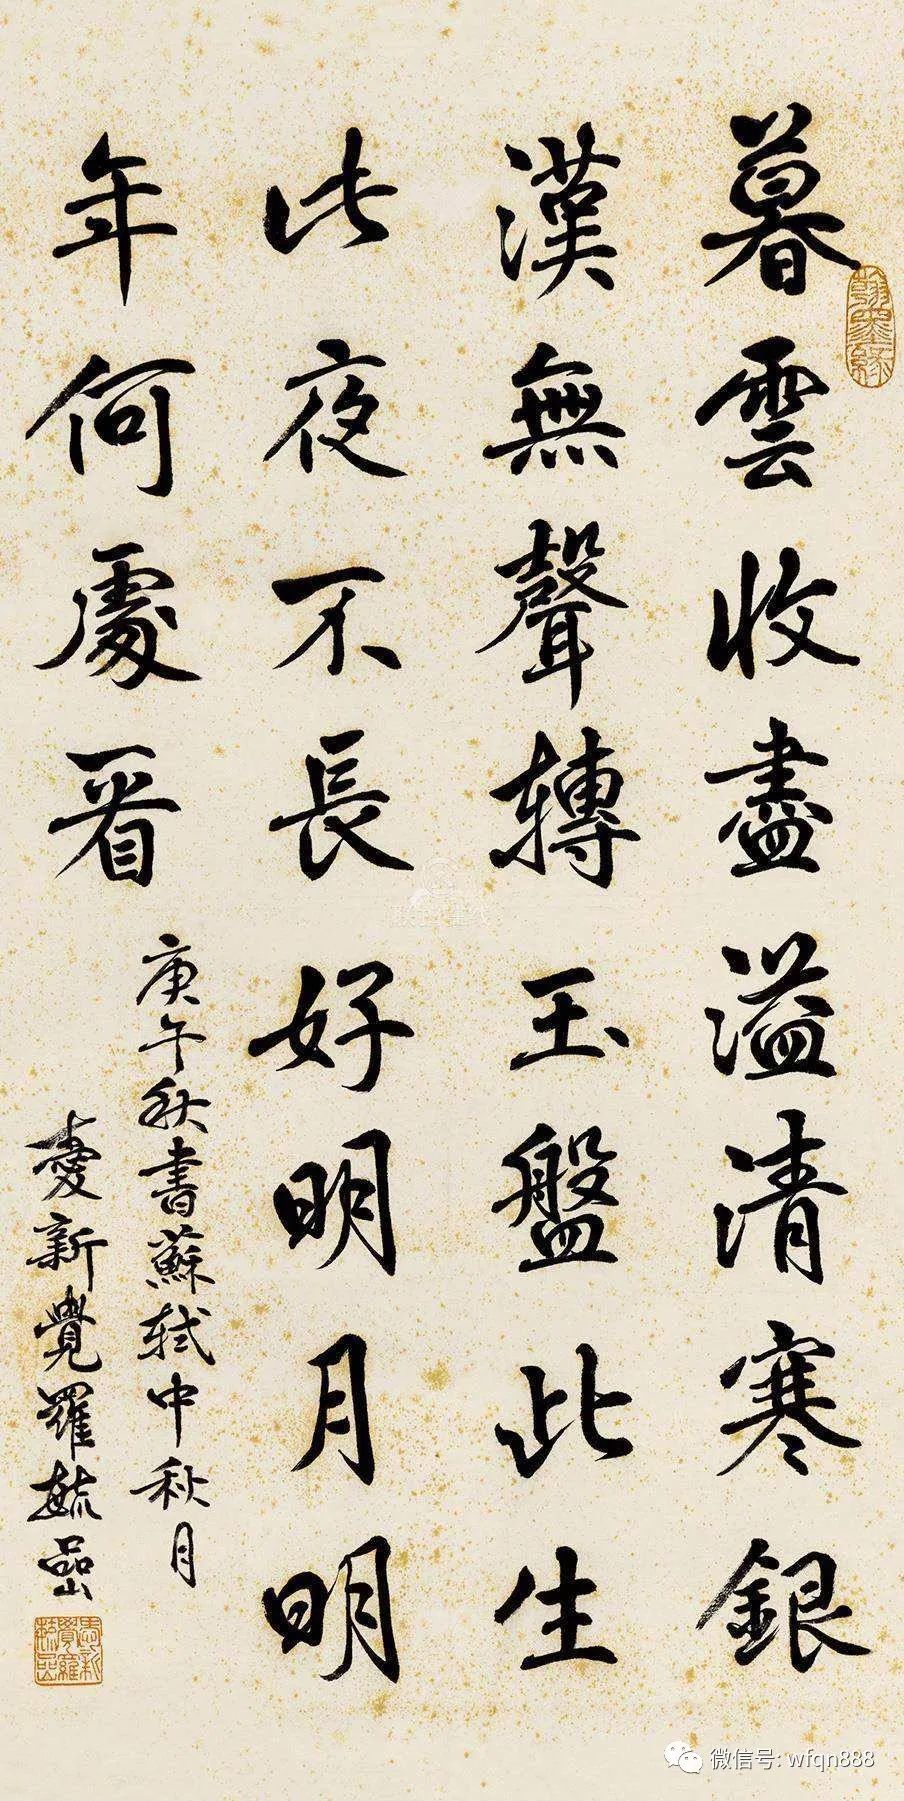 暮雲收盡溢清寒銀
漢無聲轉玉盤此生
此夜不長好明月明
年何處看
庚午秋書蘇軾中秋月
愛新覺羅毓嵒
翰墨緣
愛新覺羅毓嵒
微信号: wfqn888